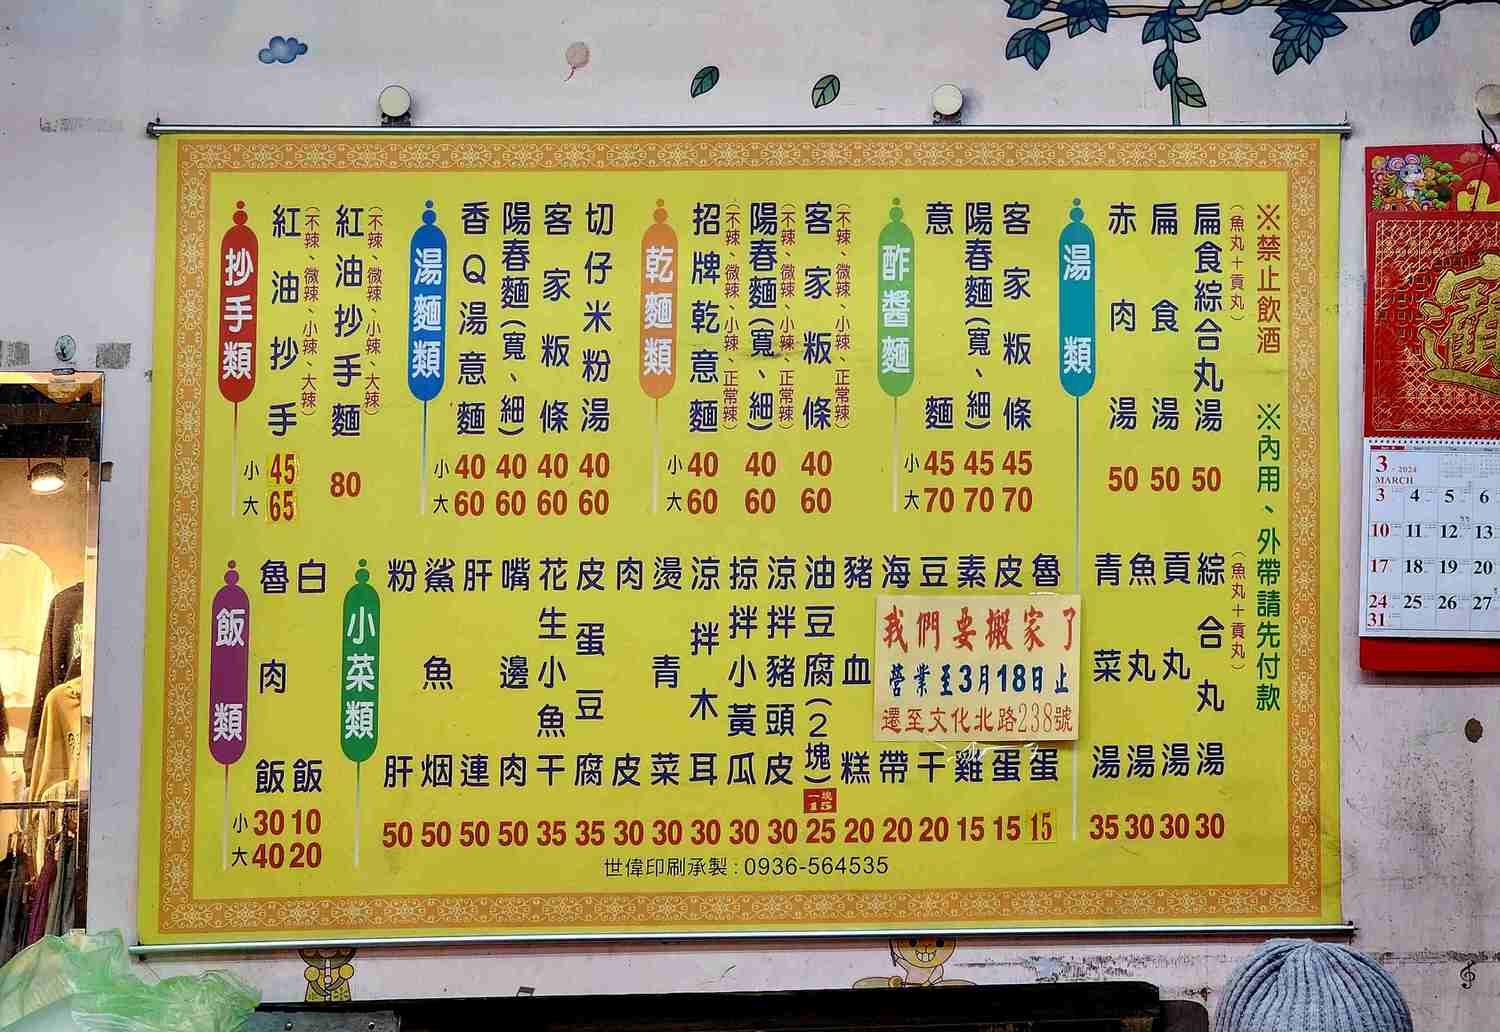 ※禁止飲酒 ※內用、外帶請先付款
湯類
扁食綜合丸湯 50
(魚丸+貢丸)
扁食湯 50
赤肉湯 50
綜合丸湯 30
(魚丸+貢丸)
貢丸湯 30
魚丸湯 30
青菜湯 35
酢醬麵
客家粄條 小45 大70
陽春麵(寬、細) 45 70
意麵 45 70
乾麵類
客家粄條 40 60
(不辣、微辣、小辣、正常辣)
陽春麵(寬、細) 40 60
(不辣、微辣、小辣、正常辣)
招牌乾意麵 小40 大60
(不辣、微辣、小辣、正常辣)
湯麵類
切仔米粉湯 40 60
客家粄條 40 60
陽春麵(寬、細) 40 60
香Q湯意麵 小40 大60
抄手類
紅油抄手麵 80
(不辣、微辣、小辣、大辣)
紅油抄手 小45 大65
(不辣、微辣、小辣、大辣)
小菜類
魯蛋 15
皮蛋 15
素雞 15
豆干 20
海帶 20
豬血糕 20
油豆腐(2塊) 25
一塊15
涼拌豬頭皮 30
掠拌小黃瓜 30
涼拌木耳 30
燙青菜 30
肉皮 30
皮蛋豆腐 35
花生小魚干 35
嘴邊肉 50
肝連 50
鯊魚烟 50
粉肝 50
飯類
白飯 10 20
魯肉飯 小30 大40
我們要搬家了
營業至3月18日止
遷至文化北路238號
世偉印刷承製:0936-564535
3 2024
MARCH
3 4 5 6
10 11 12 13
17 18 19 20
24 25 26 27
31